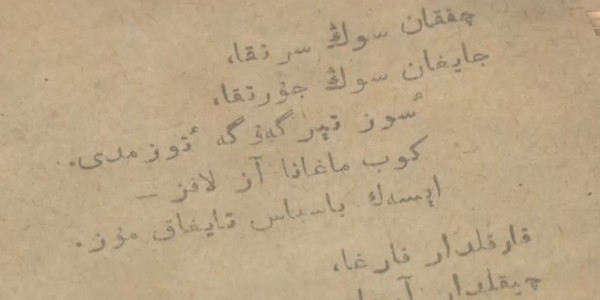 چققان سوڭ سرتقا،
جايغان سوڭ جۇرتقا،
ٴسوز تيرگەۋگە ٴتوزمدى.
كوب ماغانا از لافز —
ايسەك باسباس تايغاق مۇز.
قارقلدار قارغا،
چيقلدار